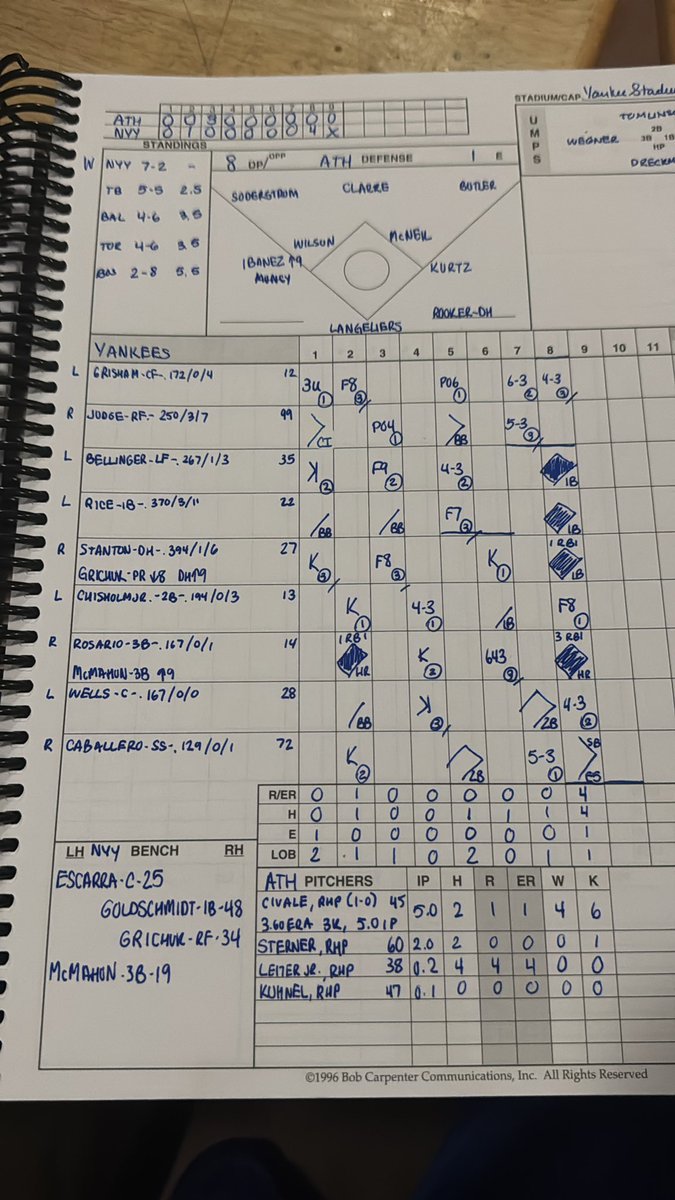 STADIUM/CAP Yankee Stadiu
1 2 3 4 5 6 7 8 9
ATH 0 0 3 0 0 0 0 0 0
NYY 0 1 0 0 0 0 0 4 X
UMPS
TOMLINS
2B
WEGNER 3B 1B
HP
DRECKM
STANDINGS
W NYY 7-2 -
TB 5-5 2.5
BAL 4-6 3.5
TOR 4-6 3.5
2-8 5.5
8 OP/OPP ATH DEFENSE 1 E
SODERSTROM
CLARKE
BUTLER
WILSON
McNEIL
IBANEZ ↑9
MUNCY
KURTZ
ROOKER-DH
LANGELIERS
YANKEES 1 2 3 4 5 6 7 8 9 10 11
L GRISHAM-CF-.172/0/4 12 3U 1 F8 3 PO6 1 6-3 2 4-3 3
R JUDGE-RF-.250/3/7 99 CI PO4 1 BB 5-3 3
L BELLINGER-LF-.267/1/3 35 K 2 F9 2 4-3 2 1B
L RICE-1B-.370/3/11 22 BB BB F7 3 1B
R STANTON-DH-.394/1/6 27 K 3 F8 3 K 1 1 RBI 1B
GRICHUK-PR ↓8 DH↑9
L CHISHOLM JR.-2B-.194/0/3 13 K 1 4-3 1 1B F8 1
R ROSARIO-3B-.167/0/1 14 1 RBI HR K 2 643 3 RBI HR
McMAHON-3B ↑9
L WELLS-C-.167/0/0 28 BB K 3 2B 4-3 2
R CABALLERO-SS-.129/0/1 72 K 2 2B 5-3 1 SB
R/ER 0 1 0 0 0 0 0 4
H 0 1 0 0 1 1 1 4
E 1 0 0 0 0 0 0 1
LOB 2 1 1 0 2 0 1 1
LH NYY BENCH RH
ESCARRA-C-25
GOLDSCHMIDT-1B-48
GRICHUK-RF-34
McMAHON-3B-19
ATH PITCHERS IP H R ER W K
CIVALE, RHP (1-0) 45 5.0 2 1 1 4 6
3.60 ERA 3K, 5.0 IP
STERNER, RHP 60 2.0 2 0 0 0 1
LEITER JR., RHP 38 0.2 4 4 4 0 0
KUHNEL, RHP 47 0.1 0 0 0 0 0
©1996 Bob Carpenter Communications, Inc. All Rights Reserved